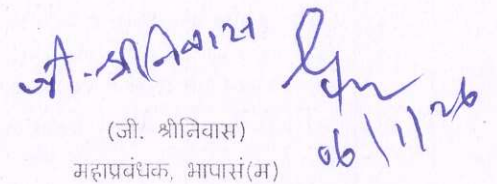 जी. श्रीनिवास
06/1/26
(जी. श्रीनिवास)
महाप्रबंधक, भापासं(म)